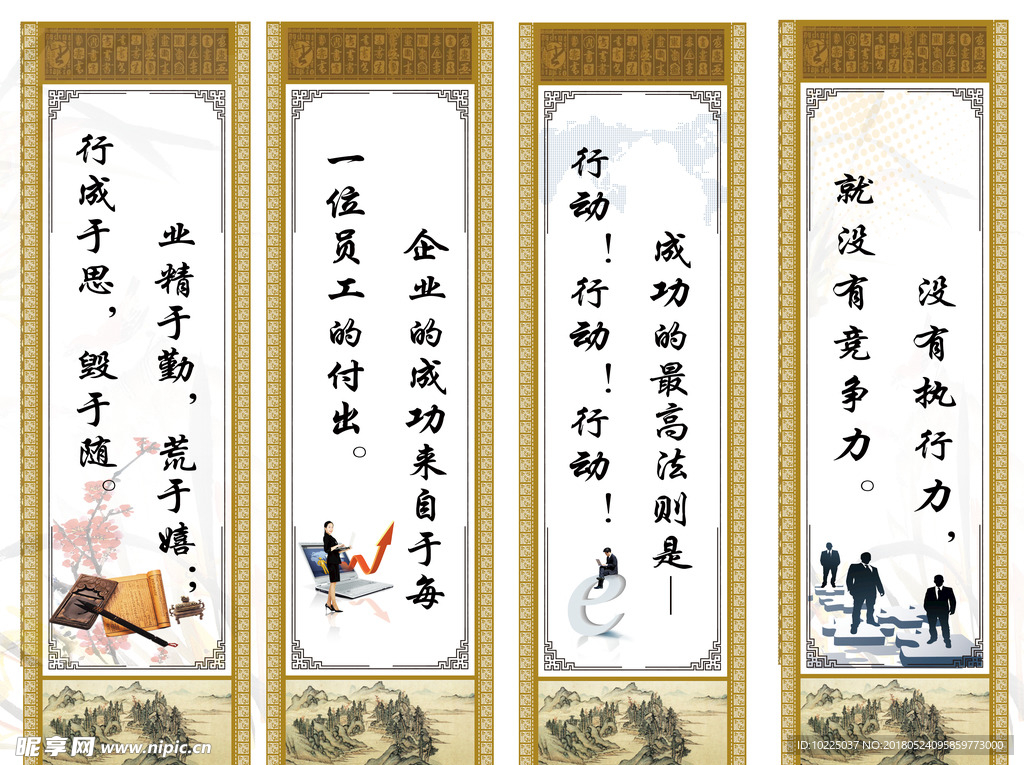 业精于勤，荒于嬉；
行成于思，毁于随。
企业的成功来自于每
一位员工的付出。
成功的最高法则是—
行动！行动！行动！
没有执行力，
就没有竞争力。
昵享网 www.nipic.cn
ID:10225037 NO:20180524095859773000